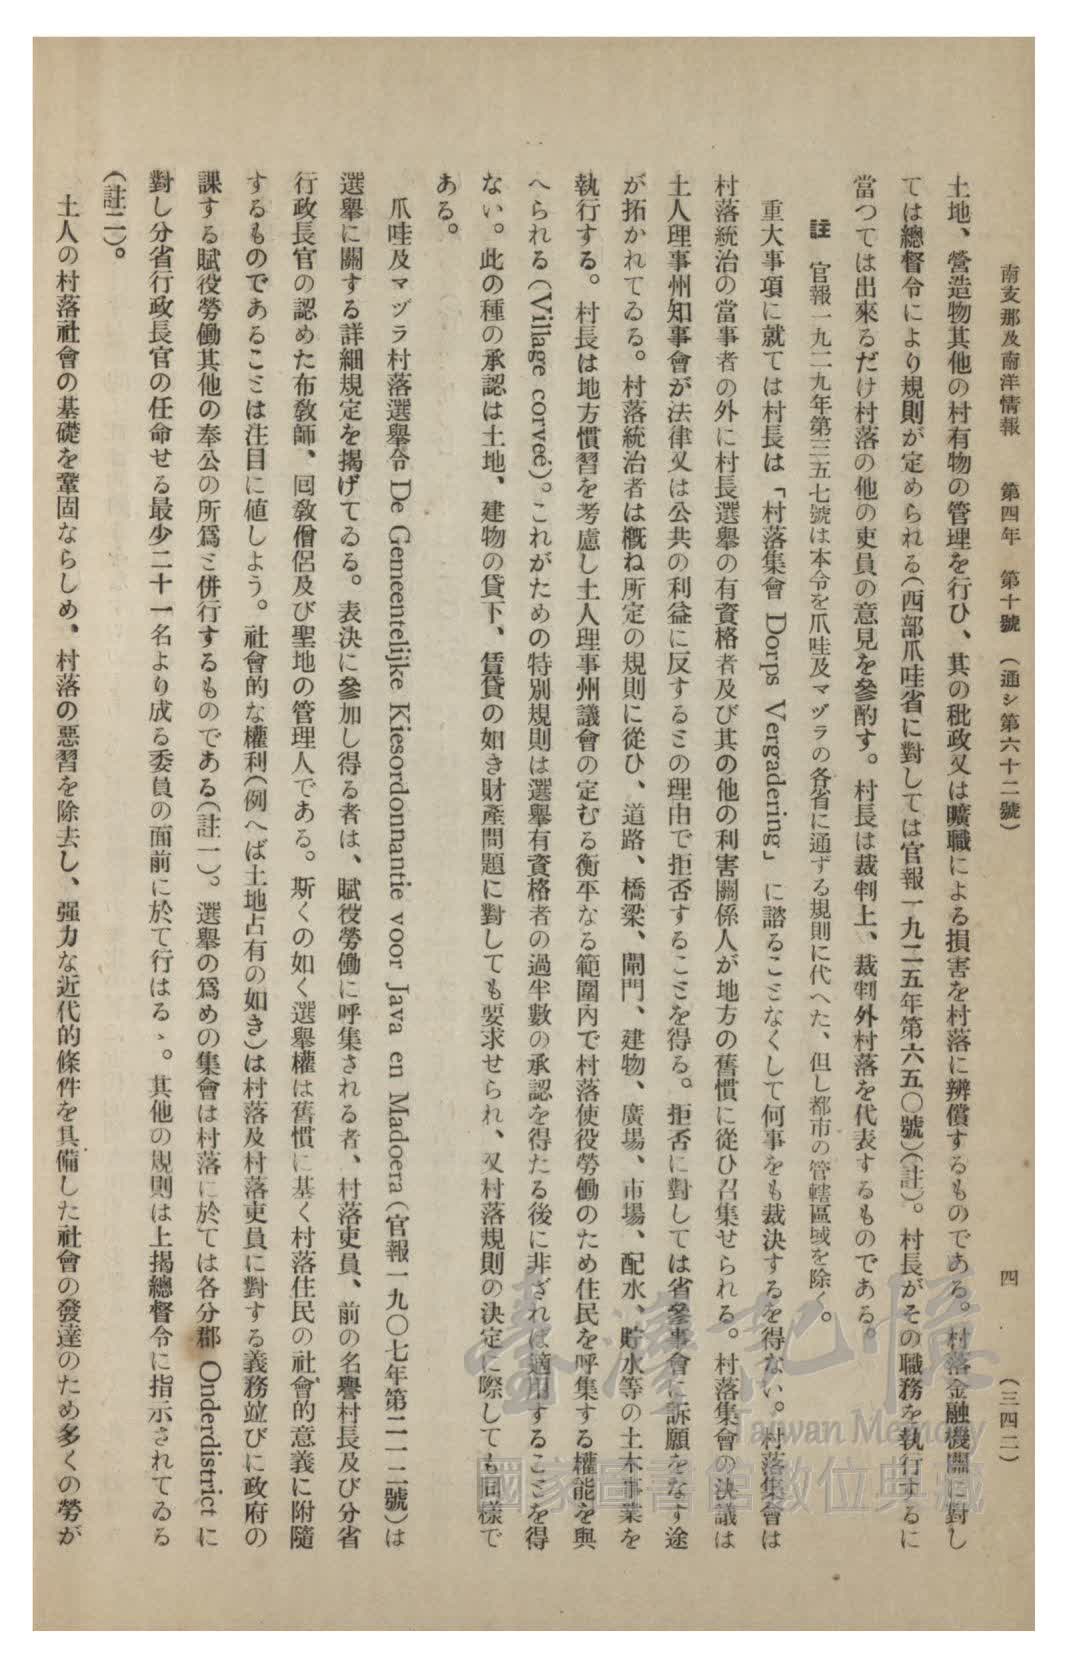 南支那及南洋情報　第四年　第十號　（通シ第六十二號）　四　（三四二）
土地、營造物其他の村有物の管理を行ひ、其の秕政又は曠職による損害を村落に辨償するものである。村落金融機關に對し
ては總督令により規則が定められる（西部爪哇省に對しては官報一九二五年第六五〇號）（註）。村長がその職務を執行するに
當つては出來るだけ村落の他の吏員の意見を參酌す。村長は裁判上、裁判外村落を代表するものである。
註　官報一九二九年第三五七號は本令を爪哇及マヅラの各省に通ずる規則に代へた、但し都市の管轄區域を除く。
重大事項に就ては村長は「村落集會 Dorps Vergadering」に諮ることなくして何事をも裁決するを得ない。村落集會は
村落統治の當事者の外に村長選擧の有資格者及び其の他の利害關係人が地方の舊慣に從ひ召集せられる。村落集會の決議は
土人理事州知事會が法律又は公共の利益に反するとの理由で拒否することを得る。拒否に對しては省參事會に訴願をなす途
が拓かれてゐる。村落統治者は概ね所定の規則に從ひ、道路、橋梁、閘門、建物、廣場、市場、配水、貯水等の土木事業を
執行する。村長は地方慣習を考慮し土人理事州議會の定むる衡平なる範圍內で村落使役勞働のため住民を呼集する權能を與
へられる（Village corveé）。これがための特別規則は選擧有資格者の過半數の承認を得たる後に非ざれば適用することを得
ない。此の種の承認は土地、建物の貸下、賃貸の如き財產問題に對しても要求せられ、又村落規則の決定に際しても同樣で
ある。
爪哇及マヅラ村落選擧令 De Gemeentelijke Kiesordonnantie voor Java en Madoera（官報一九〇七年第二一二號）は
選擧に關する詳細規定を揭げてゐる。表決に參加し得る者は、賦役勞働に呼集される者、村落吏員、前の名譽村長及び分省
行政長官の認めた布敎師、回敎僧侶及び聖地の管理人である。斯くの如く選擧權は舊慣に基く村落住民の社會的意義に附隨
するものであることは注目に値しよう。社會的な權利（例へば土地占有の如き）は村落及村落吏員に對する義務竝びに政府の
課する賦役勞働其他の奉公の所爲と併行するものである（註一）。選擧の爲めの集會は村落に於ては各分郡 Onderdistrict に
對し分省行政長官の任命せる最少二十一名より成る委員の面前に於て行はるゝ。其他の規則は上揭總督令に指示されてゐる
（註二）。
土人の村落社會の基礎を鞏固ならしめ、村落の惡習を除去し、强力な近代的條件を具備した社會の發達のため多くの勞が
臺灣記憶
Taiwan Memory
國家圖書館數位典藏